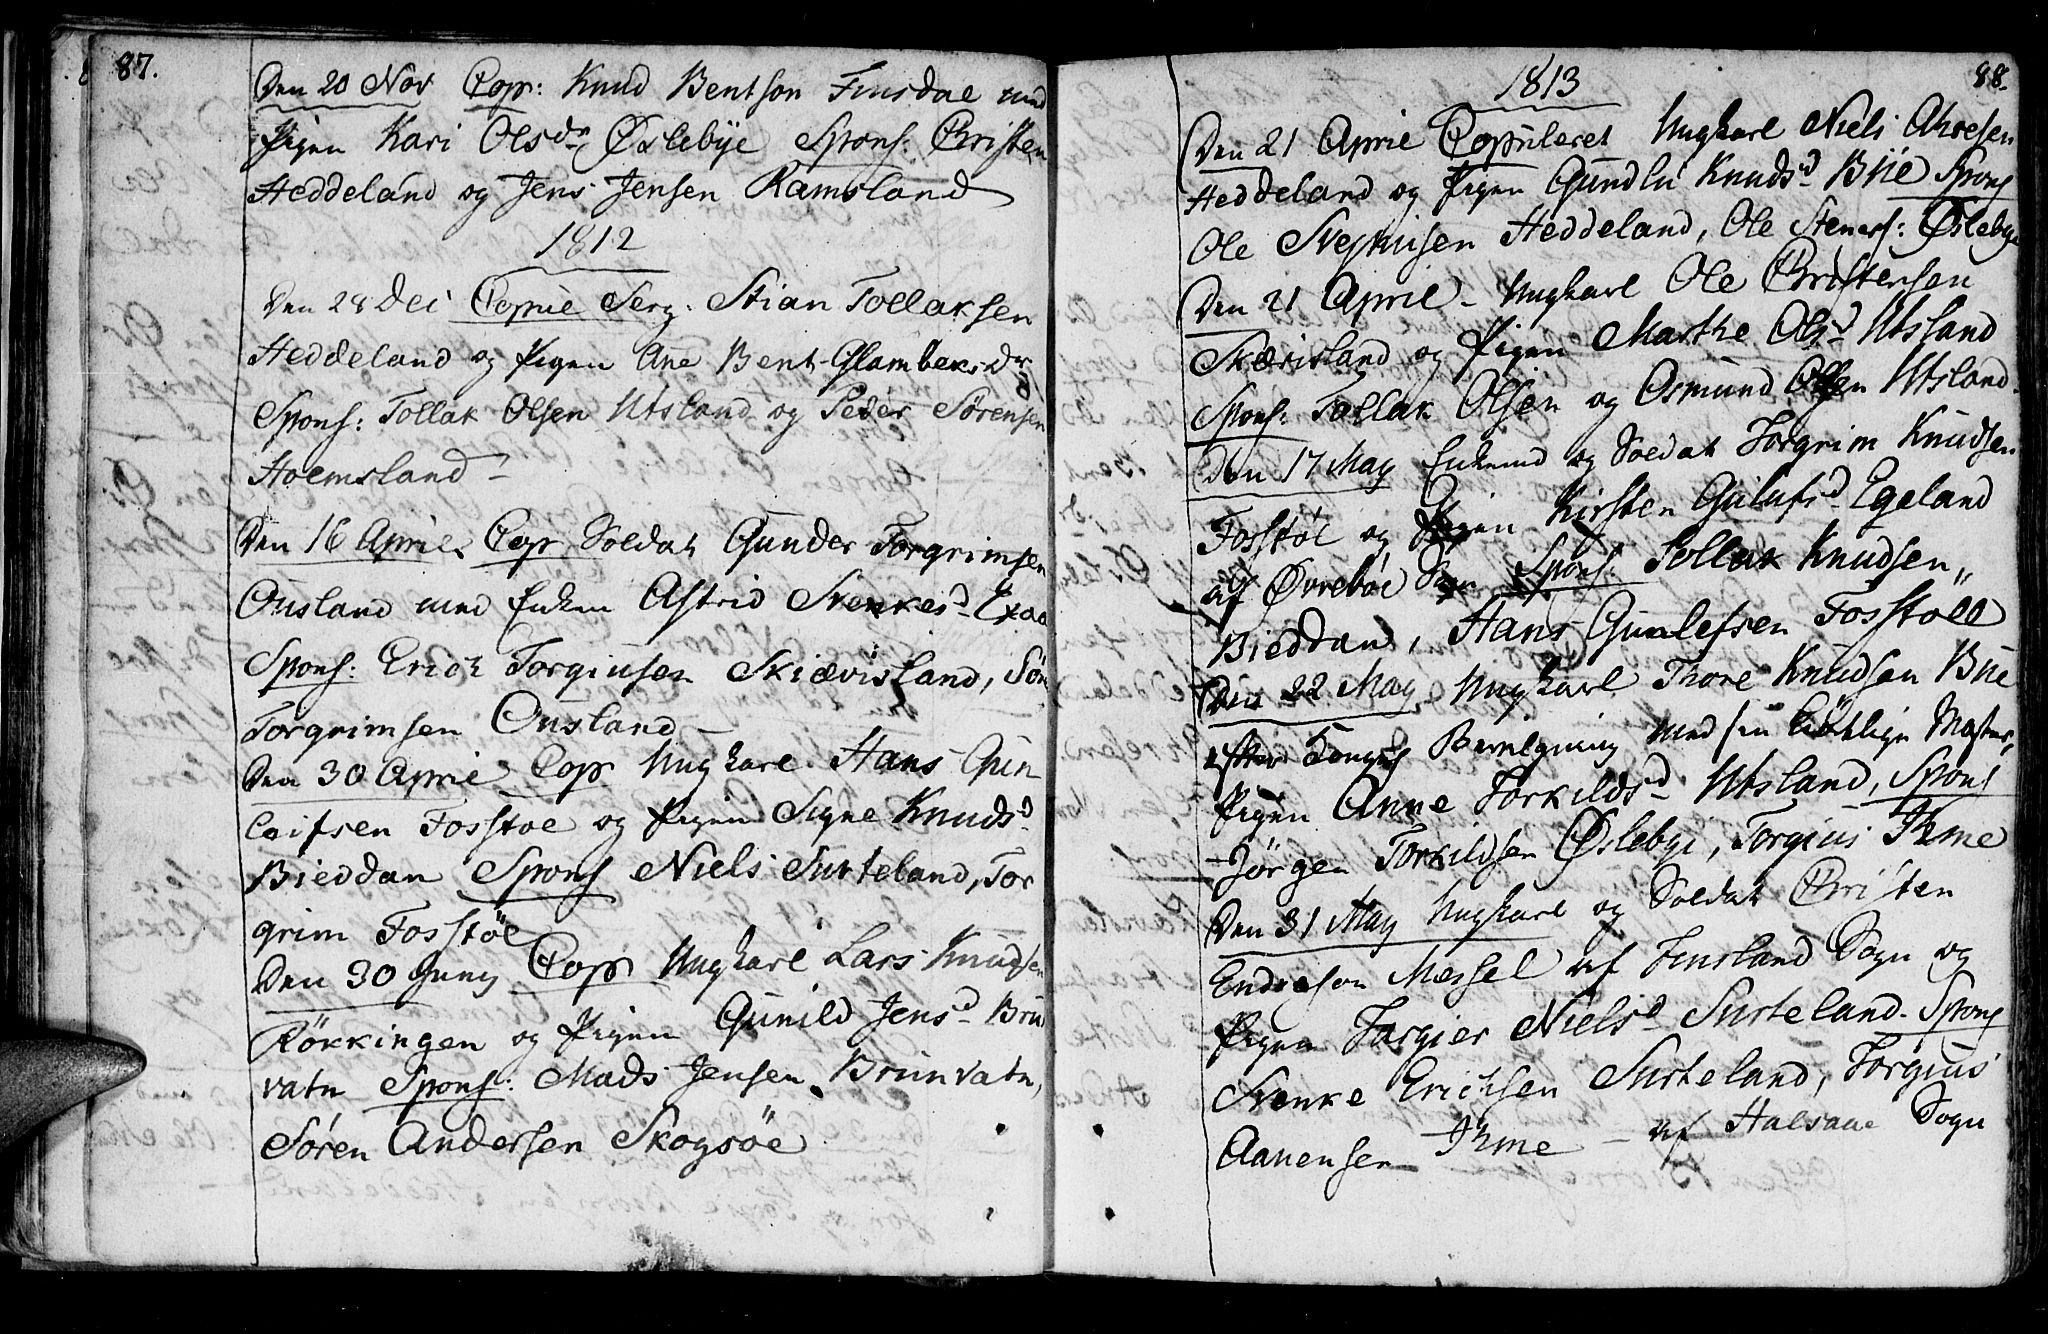 87.
Den 20 Nov Cop: Knud Bentson Finsdal med
Pigen Kari Olsdr Øslebye Spons: Christen
Heddeland og Jens Jensen Ramsland
1812
Den 28 Dec Copul Serg. Stian Tollaksen
Heddeland og Pigen Ane Bent Glambeksdr
Spons: Tollak Olsen Utsland og Peder Sörensen
Holmsland
Den 16 April Cop Soldat Gunder Torgrimsen
Ousland med Enken Astrid Svenkesd
Spons: Erich Torgiusen Skiævisland, Sör
Torgrimsen Ousland
Den 30 April Cop Ungkarl Hans Gun
leifsen Fosstöl og Pigen Signe Knudsd
Bieddan Spons Niels Surteland, Tor
grim Fosstöl
Den 30 Juny Cop Ungkarl Lars Knudsen
Rökkingen og Pigen Gunild Jensd Brun
vatn Spons: Mads Jensen Brunvatn,
Sören Andersen Skogsöe
88.
1813
Den 21 April Copuleret Ungkarl Niels
Heddeland og Pigen Gundlu Knudsd Büe Spons
Ole Heddeland, Ole Steners: Øslebye
Den 21 April Ungkarl Ole Christensen
Skævisland og Pigen Marthe Olsd Utsland
Spons: Tollak Olsen og Osmund Olsen Utsland
Den 17 May Enkemd og Soldat Torgrim Knudsen
Fosstöl og Pigen Kirsten Gulufsd Egeland
af Øvreböe Sogn Spons: Tollak Knudsen
Bieddan, Hans Gunlefsen Fosstöll
Den 22 May Ungkarl Thore Knudsen Büe
efter Kongens Bevilgning med sin
Pigen Anne Torkildsd Utsland, Spons
Jörgen Torkildsen Øslebye, Torgius Ihme
Den 31 May Ungkarl og Soldat Christen
Endreson Messel af Finsland Sogn og
Pigen Torgier Nielsd Surteland. Spons
Svenke Erichsen Surteland, Torgius
Aanensen Ihme – af Halsaae Sogn